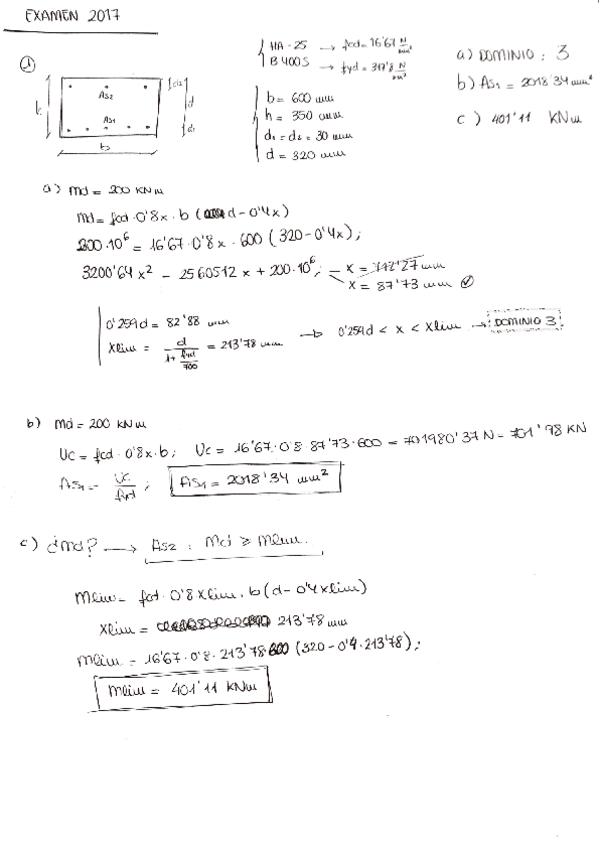 EXAMEN 2017
①
HA-25 → fcd = 16'67 N/mm²
B400S → fyd = 347'8 N/mm²
a) DOMINIO: 3
b) As1 = 2018'34 mm²
c) 401'11 KNm
b = 600 mm
h = 350 mm
d1 = d2 = 30 mm
d = 320 mm
As2
As1
h
b
d2
d
d1
a) Md = 200 KNm
Md = fcd · 0'8x · b (d - 0'4x)
200·10⁶ = 16'67·0'8x · 600 (320 - 0'4x);
3200'64x² - 2560512x + 200·10⁶;
x = 712'27 mm
x = 87'73 mm ✓
0'259d = 82'88 mm
Xlim = d/(1+fyd/700) = 213'78 mm → 0'259d < x < Xlim → DOMINIO 3
b) Md = 200 KNm
Uc = fcd · 0'8x · b; Uc = 16'67·0'8·87'73·600 = 701980'37 N = 701'98 KN
As1 = Uc/fyd; As1 = 2018'34 mm²
c) ¿Md? → As2 : Md ≥ Mlim.
Mlim = fcd · 0'8 Xlim · b (d - 0'4xlim)
Xlim = 213'78 mm
Mlim = 16'67·0'8·213'78·600 (320 - 0'4·213'78);
Mlim = 401'11 KNm